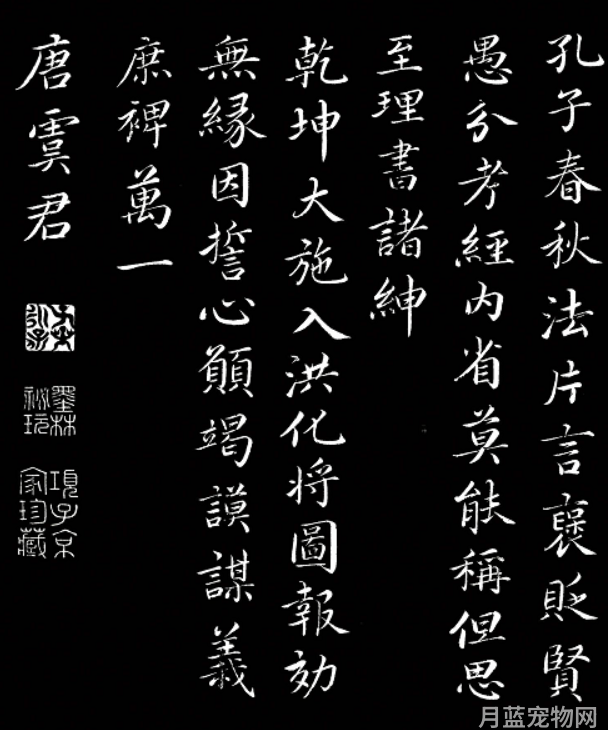 孔子春秋法片言褒貶賢
愚分考經内省莫能稱但思
至理書諸紳
乾坤大施入洪化将圖報効
無緣因誓心願竭謨謀義
庶裨萬一
唐虞君
墨林
祕玩
項子京
家珍藏
月蓝宠物网